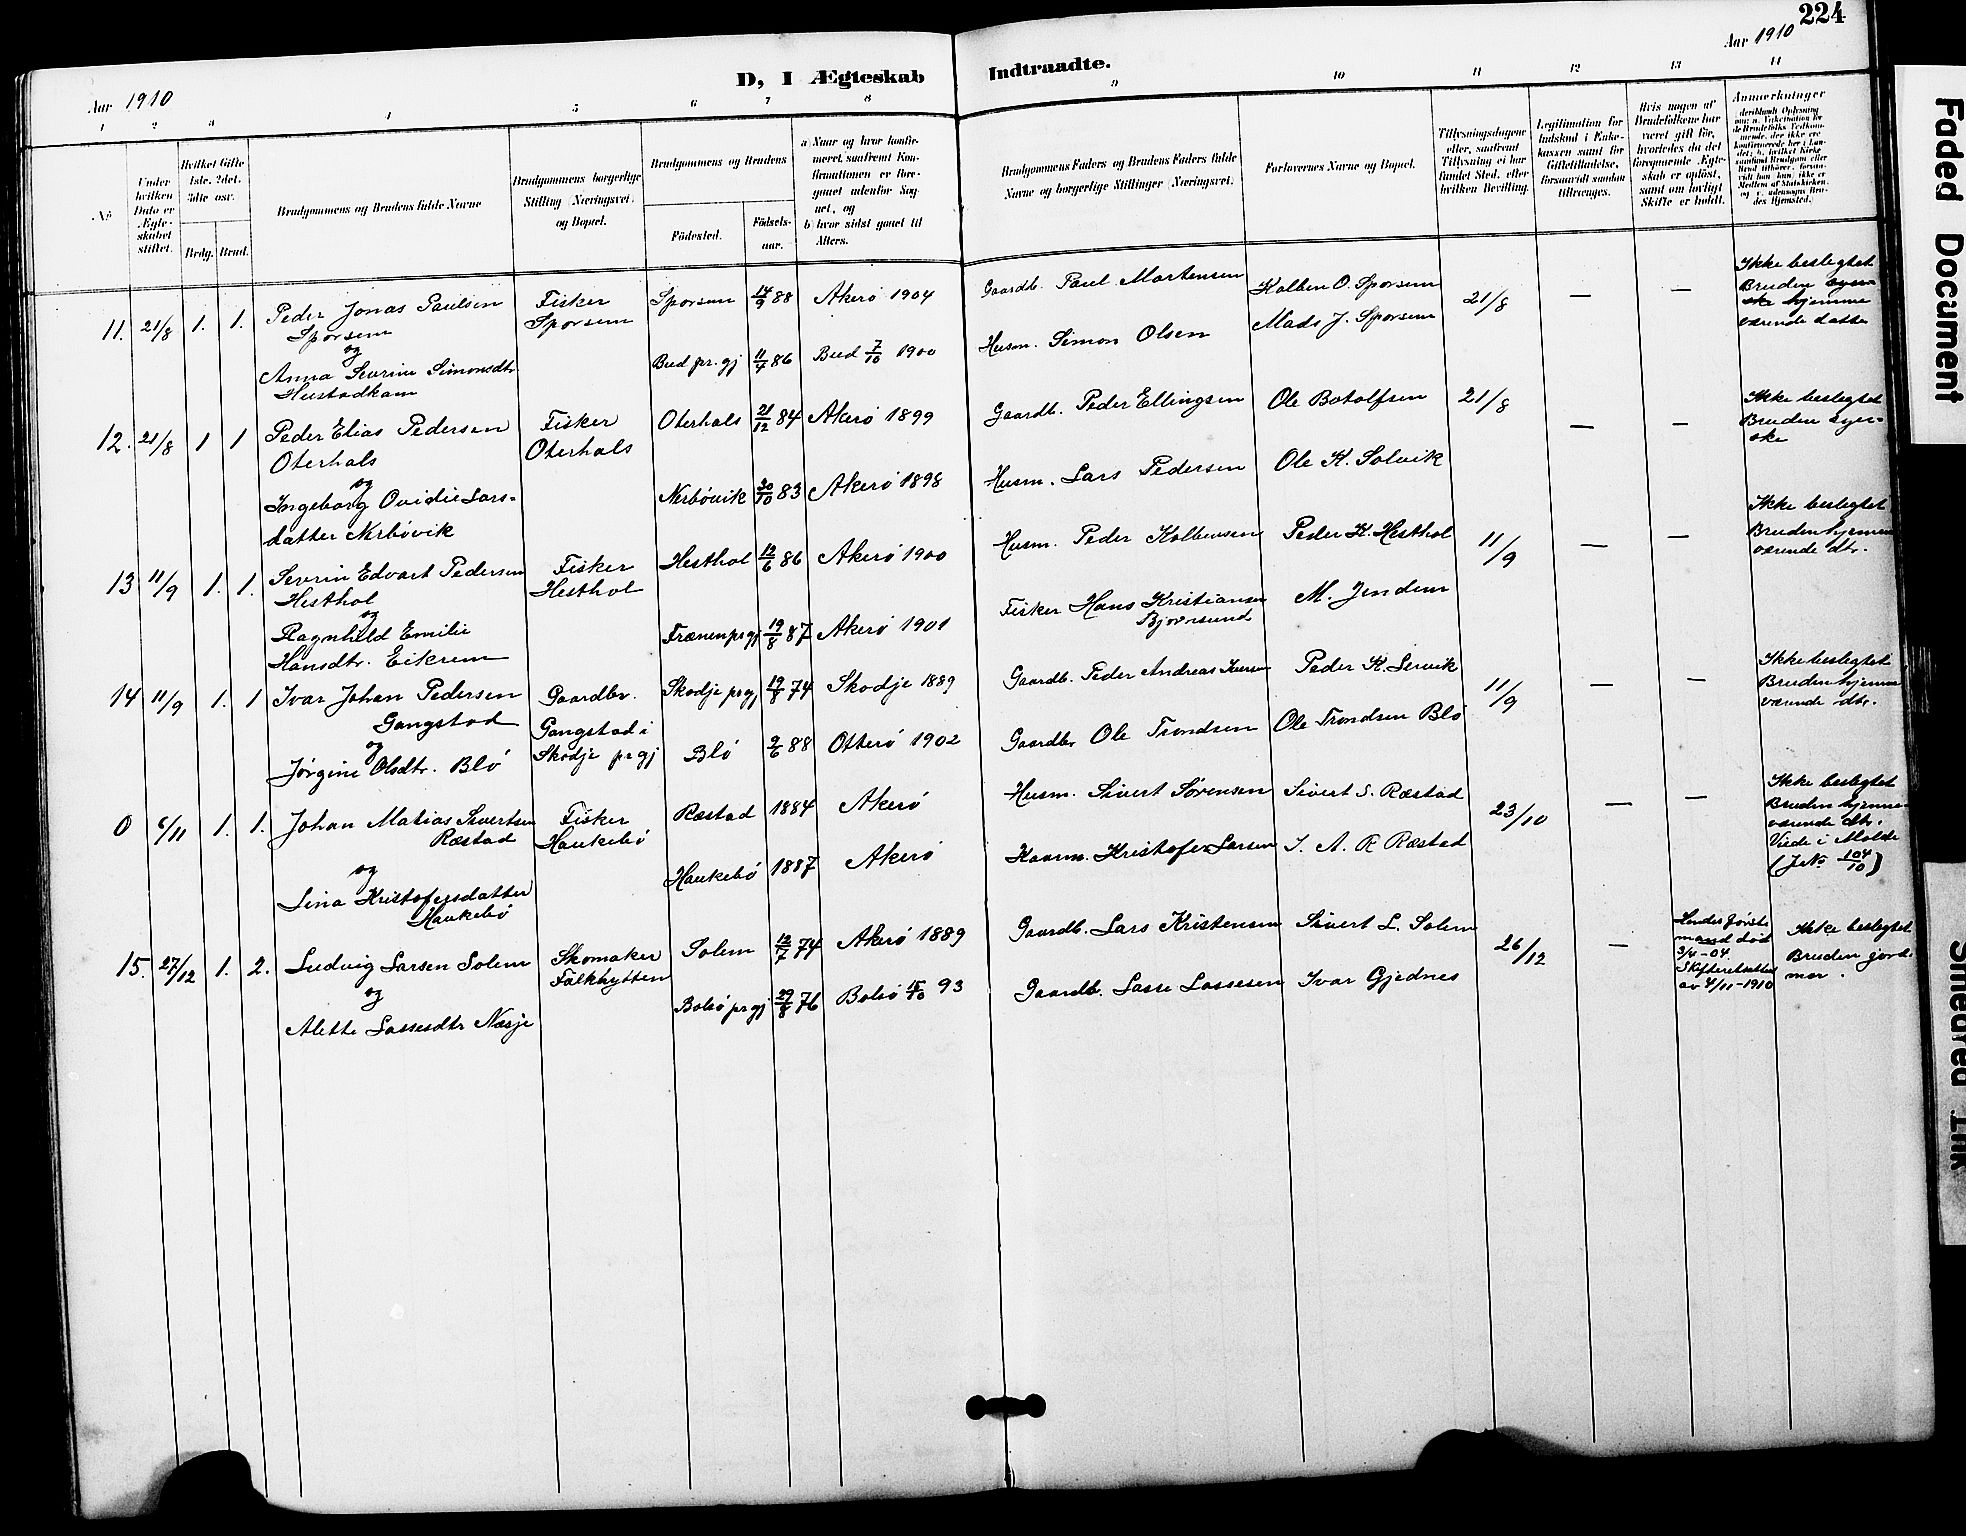 224
Aar 1910
Aar 1910
D, I Ægteskab Indtraadte.
1 2 3 4 5 6 7 8 9 10 11 12 13 14
No
Under
hvilken
Dato er
Ægte-
skabet
stiftet.
Hvilket Gifte
1ste, 2det,
3die osv.
Brdg. Brud.
Brudgommens og Brudens fulde Navne
Brudgommens borgerlige
Stilling (Næringsvei)
og Bopæl.
Brudgommens og Brudens
Födested.
Födsels-
aar.
a) Naar og hvor konfir-
meret, saafremt Kon-
firmationen er fore-
gaaet udenfor Sog-
net, og
b) hvor sidst gaaet til
Alters.
Brudgommens Faders og Brudens Faders fulde
Navne og borgerlige Stillinger (Næringsvei).
Forlovernes Navne og Bopæl.
Tillysningsdagene
eller, saafremt
Tillysning ei har
fundet Sted, efter
hvilken Bevilling.
Legitimation for
Indskud i Enke-
kassen samt for
Giftetilladelse,
forsaavidt saadan
tiltrænges.
Hvis nogen af
Brudefolkene har
været gift för,
hvorledes da det
foregaaende Ægte-
skab er oplöst,
samt om lovligt
Skifte er holdt.
Anmærkninger
11. 21/8 1. 1. Peder Jonas Paulsen
Sporsem
og
Anna Sevrine Simonsdtr
Hustadkam
Fisker
Sporsem
Sporsem 14/9 88 Akerö 1904
Bud pr.gj 11/4 86 Bud 7/10 1900
Gaardb. Paul Martensen
Husm. Simon Olsen
Kolben O. Sporsem
Mads J. Sporsem
21/8 — —
Ikke beslegtet
Bruden
hjemme
værende datter
12. 21/8 1 1 Peder Elias Pedersen
Oterhals
og
Ingeborg Ovidie Lars-
datter Nerbövik
Fisker
Oterhals
Oterhals 21/12 84 Akerö 1899
Nerbövik 30/10 83 Akerö 1898
Gaardb. Peder Ellingsen
Husm. Lars Pedersen
Ole Botolfsen
Ole K. Solvik
21/8 — —
Ikke beslegtet
Bruden syer-
ske
13 11/9 1. 1. Sevrin Edvart Pedersen
Hesthol
og
Ragnhild Emilie
Hansdtr. Eikrem
Fisker
Hesthol
Hesthol 12/6 86 Akerö 1900
Frænen prgj 19/8 87 Akerö 1901
Husm. Peder Kolbensen
Fisker Hans Kristiansen
Bjørnsund
Peder K. Hesthol
M. Jendem
11/9 — —
Ikke beslegtet
Bruden hjemme
værende dtr.
14 11/9 1. 1 Ivar Johan Pedersen
Gangstad
og
Jørgine Olsdtr. Blö
Gaardbr.
Gangstad i
Skodje prgj
Skodje prgj 19/8 74 Skodje 1889
Blö 9/6 88 Otterö 1902
Gaardb. Peder Andreas Iversen
Gaardbr Ole Trondsen
Peder K. Lervik
Ole Trondsen Blö
11/9 — —
Ikke beslegtet
Bruden hjemme
værende dtr.
0 6/11 1. 1. Johan Matias Sivertsen
Ræstad
og
Lina Kristofersdatter
Haukebö
Fisker
Haukebö
Ræstad 1884 Akerö
Haukebö 1887 Akerö
Husm. Sivert Sörensen
Kaarm. Kristofer Larsen
Sivert S. Ræstad
I. A. R Ræstad
23/10 — —
Ikke beslegtet
Bruden hjemme
værende dtr.
Viede i Molde
(J.No 104/10)
15. 27/12 1. 2. Ludvig Larsen Solem
og
Alette Lassesdtr Næsje
Skomaker
Falkhytten
Solem 12/7 74 Akerö 1889
Bolsö prgj 29/8 76 Bolsö 15/10 93
Gaardb. Lars Kristensen
Gaardb. Lasse Lassesen
Sivert L. Solem
Ivar Gjednes
26/12 —
Hendes förste
mand död
3/4-04.
Skifteretsattest
av 4/11-1910
Ikke beslegtet
Bruden jord-
mor.
Faded Document
Smeared Ink